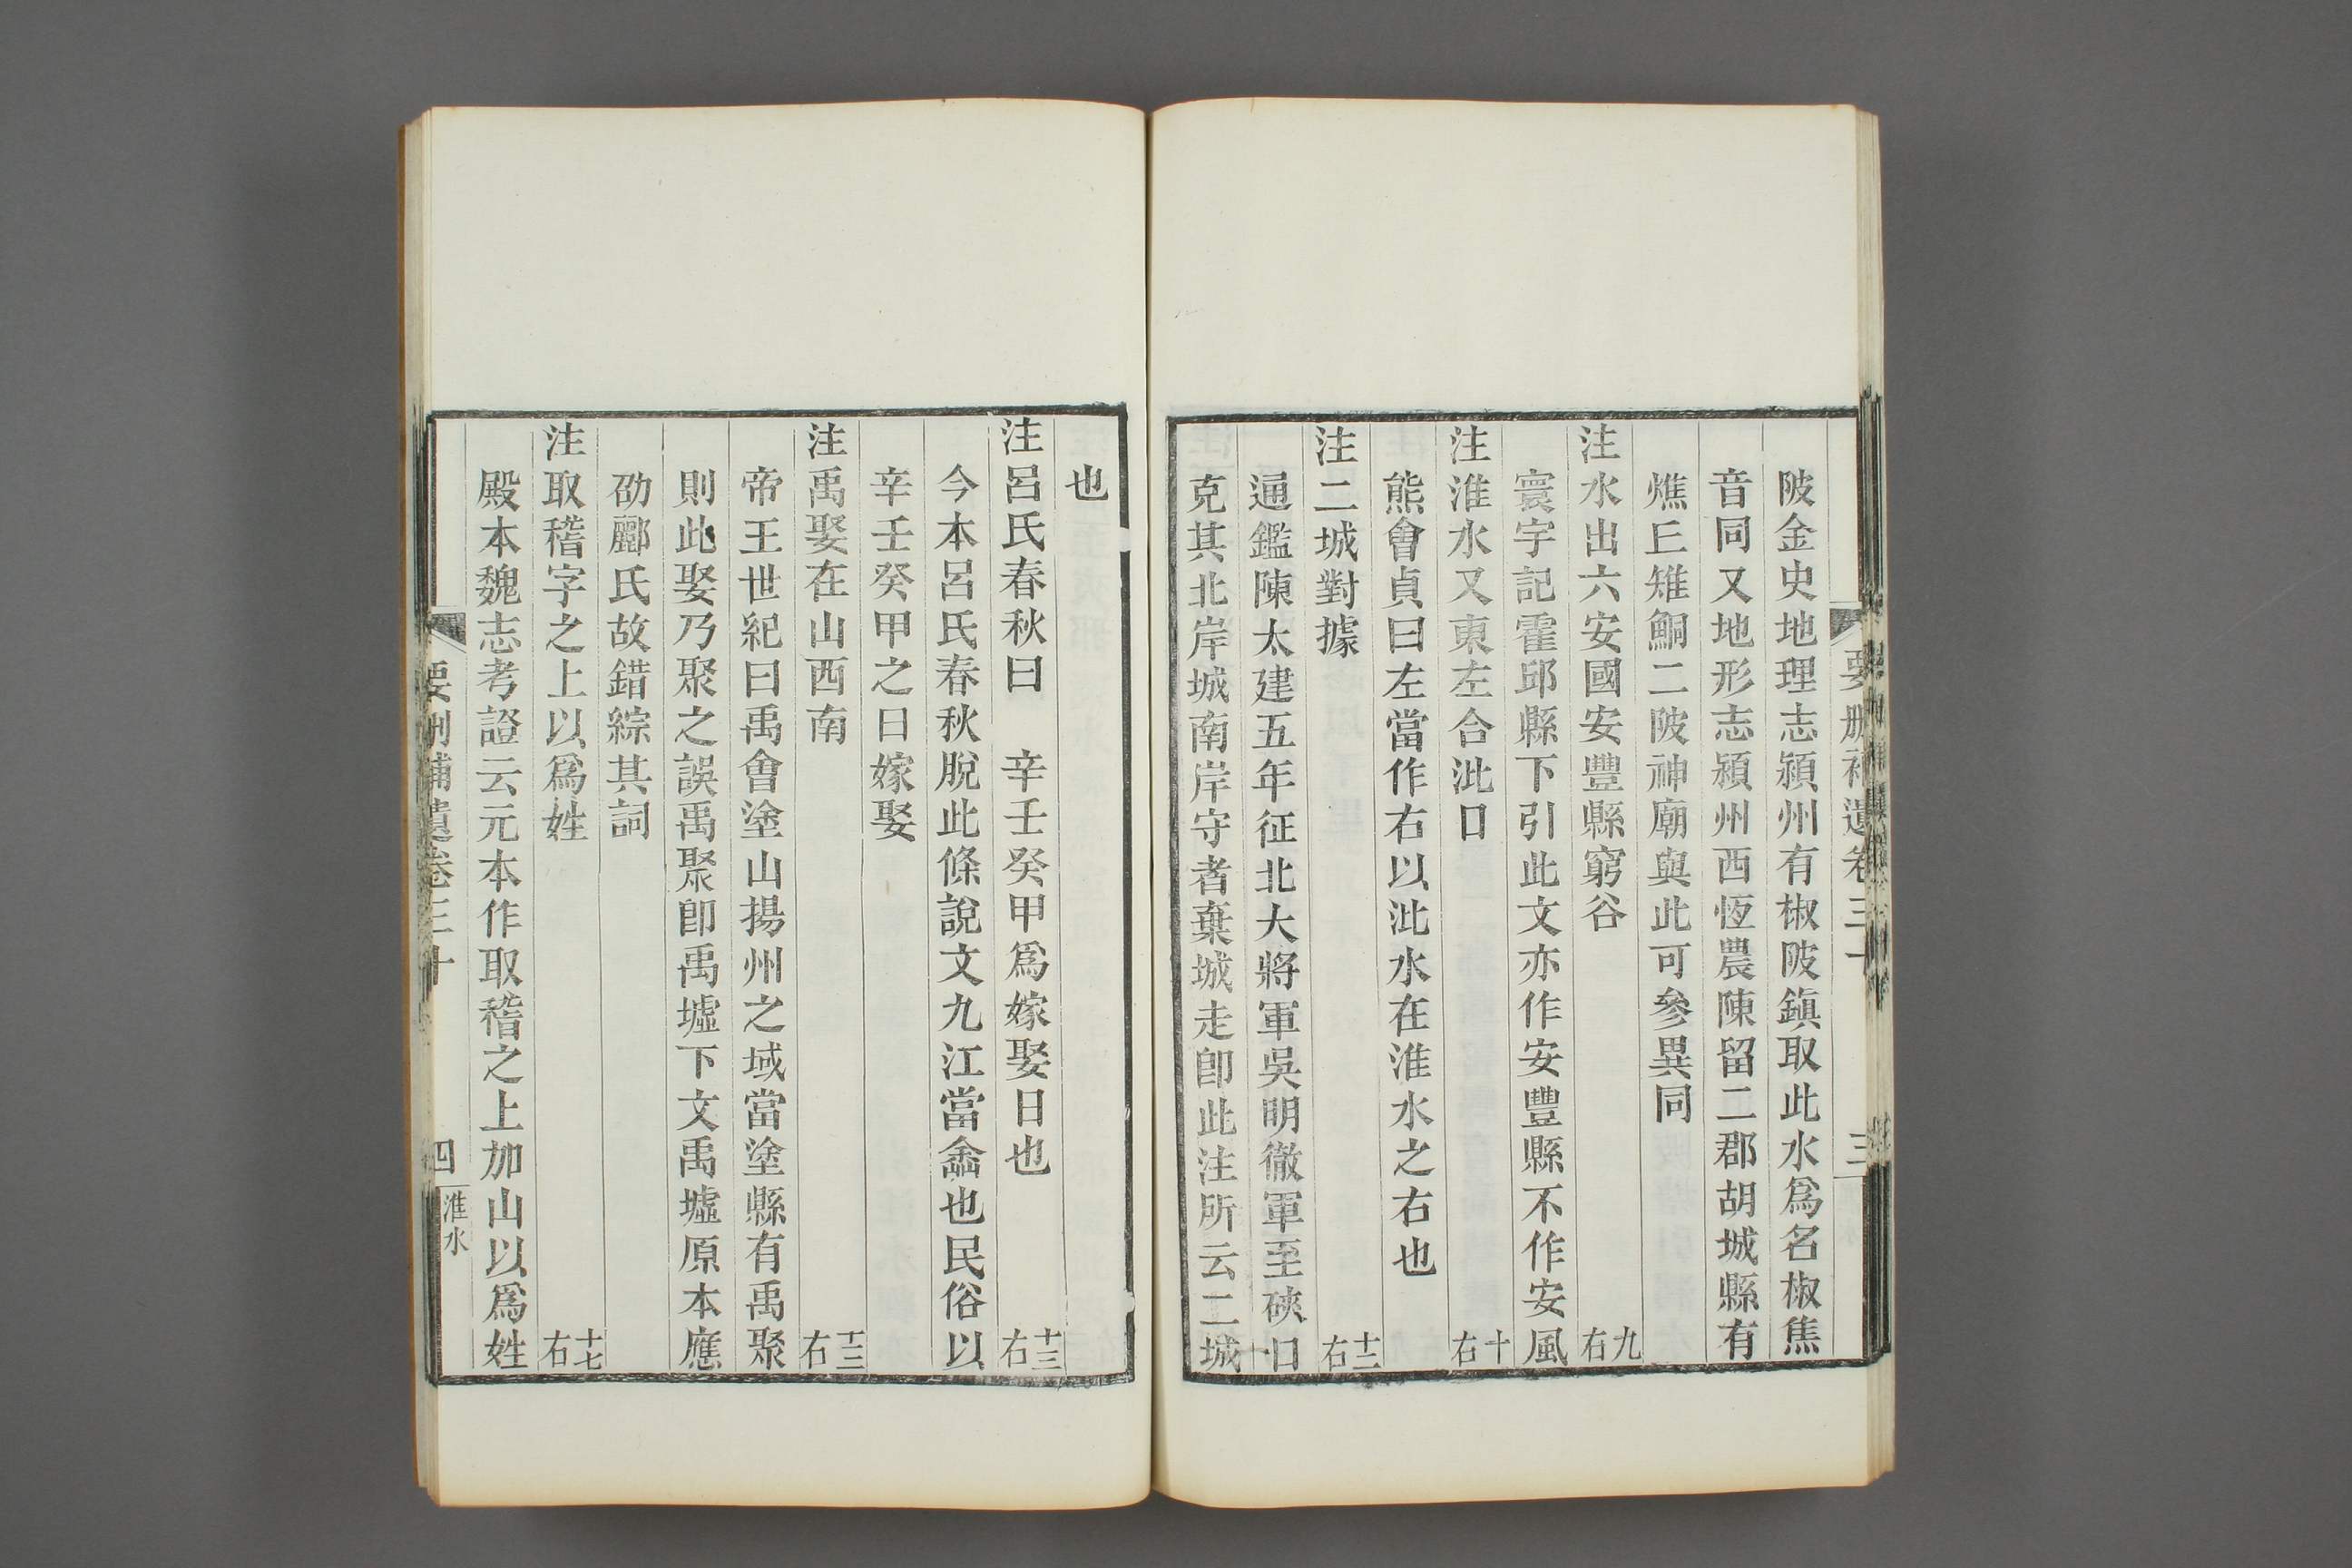 要刪補遺卷三十
三
陂金史地理志潁州有椒陂鎮取此水爲名椒焦
音同又地形志潁州西恆農陳留二郡胡城縣有
燋丘雉鮦二陂神廟與此可參異同
注水出六安國安豐縣窮谷 九右
寰宇記霍邱縣下引此文亦作安豐縣不作安風
注淮水又東左合沘口 十右
熊會貞曰左當作右以沘水在淮水之右也
注二城對據 十二右
通鑑陳太建五年征北大將軍吳明徹軍至硤口
克其北岸城南岸守者棄城走卽此注所云二城
也
注呂氏春秋曰 辛壬癸甲爲嫁娶日也 十三右
今本呂氏春秋脫此條說文九江當嵞也民俗以
辛壬癸甲之日嫁娶
注禹娶在山西南 十三右
帝王世紀曰禹會塗山揚州之域當塗縣有禹聚
則此娶乃聚之誤禹聚卽禹墟下文禹墟原本應
劭酈氏故錯綜其詞
注取稽字之上以爲姓 十七右
殿本魏志考證云元本作取稽之上加山以爲姓
要刪補遺卷三十
四
淮水